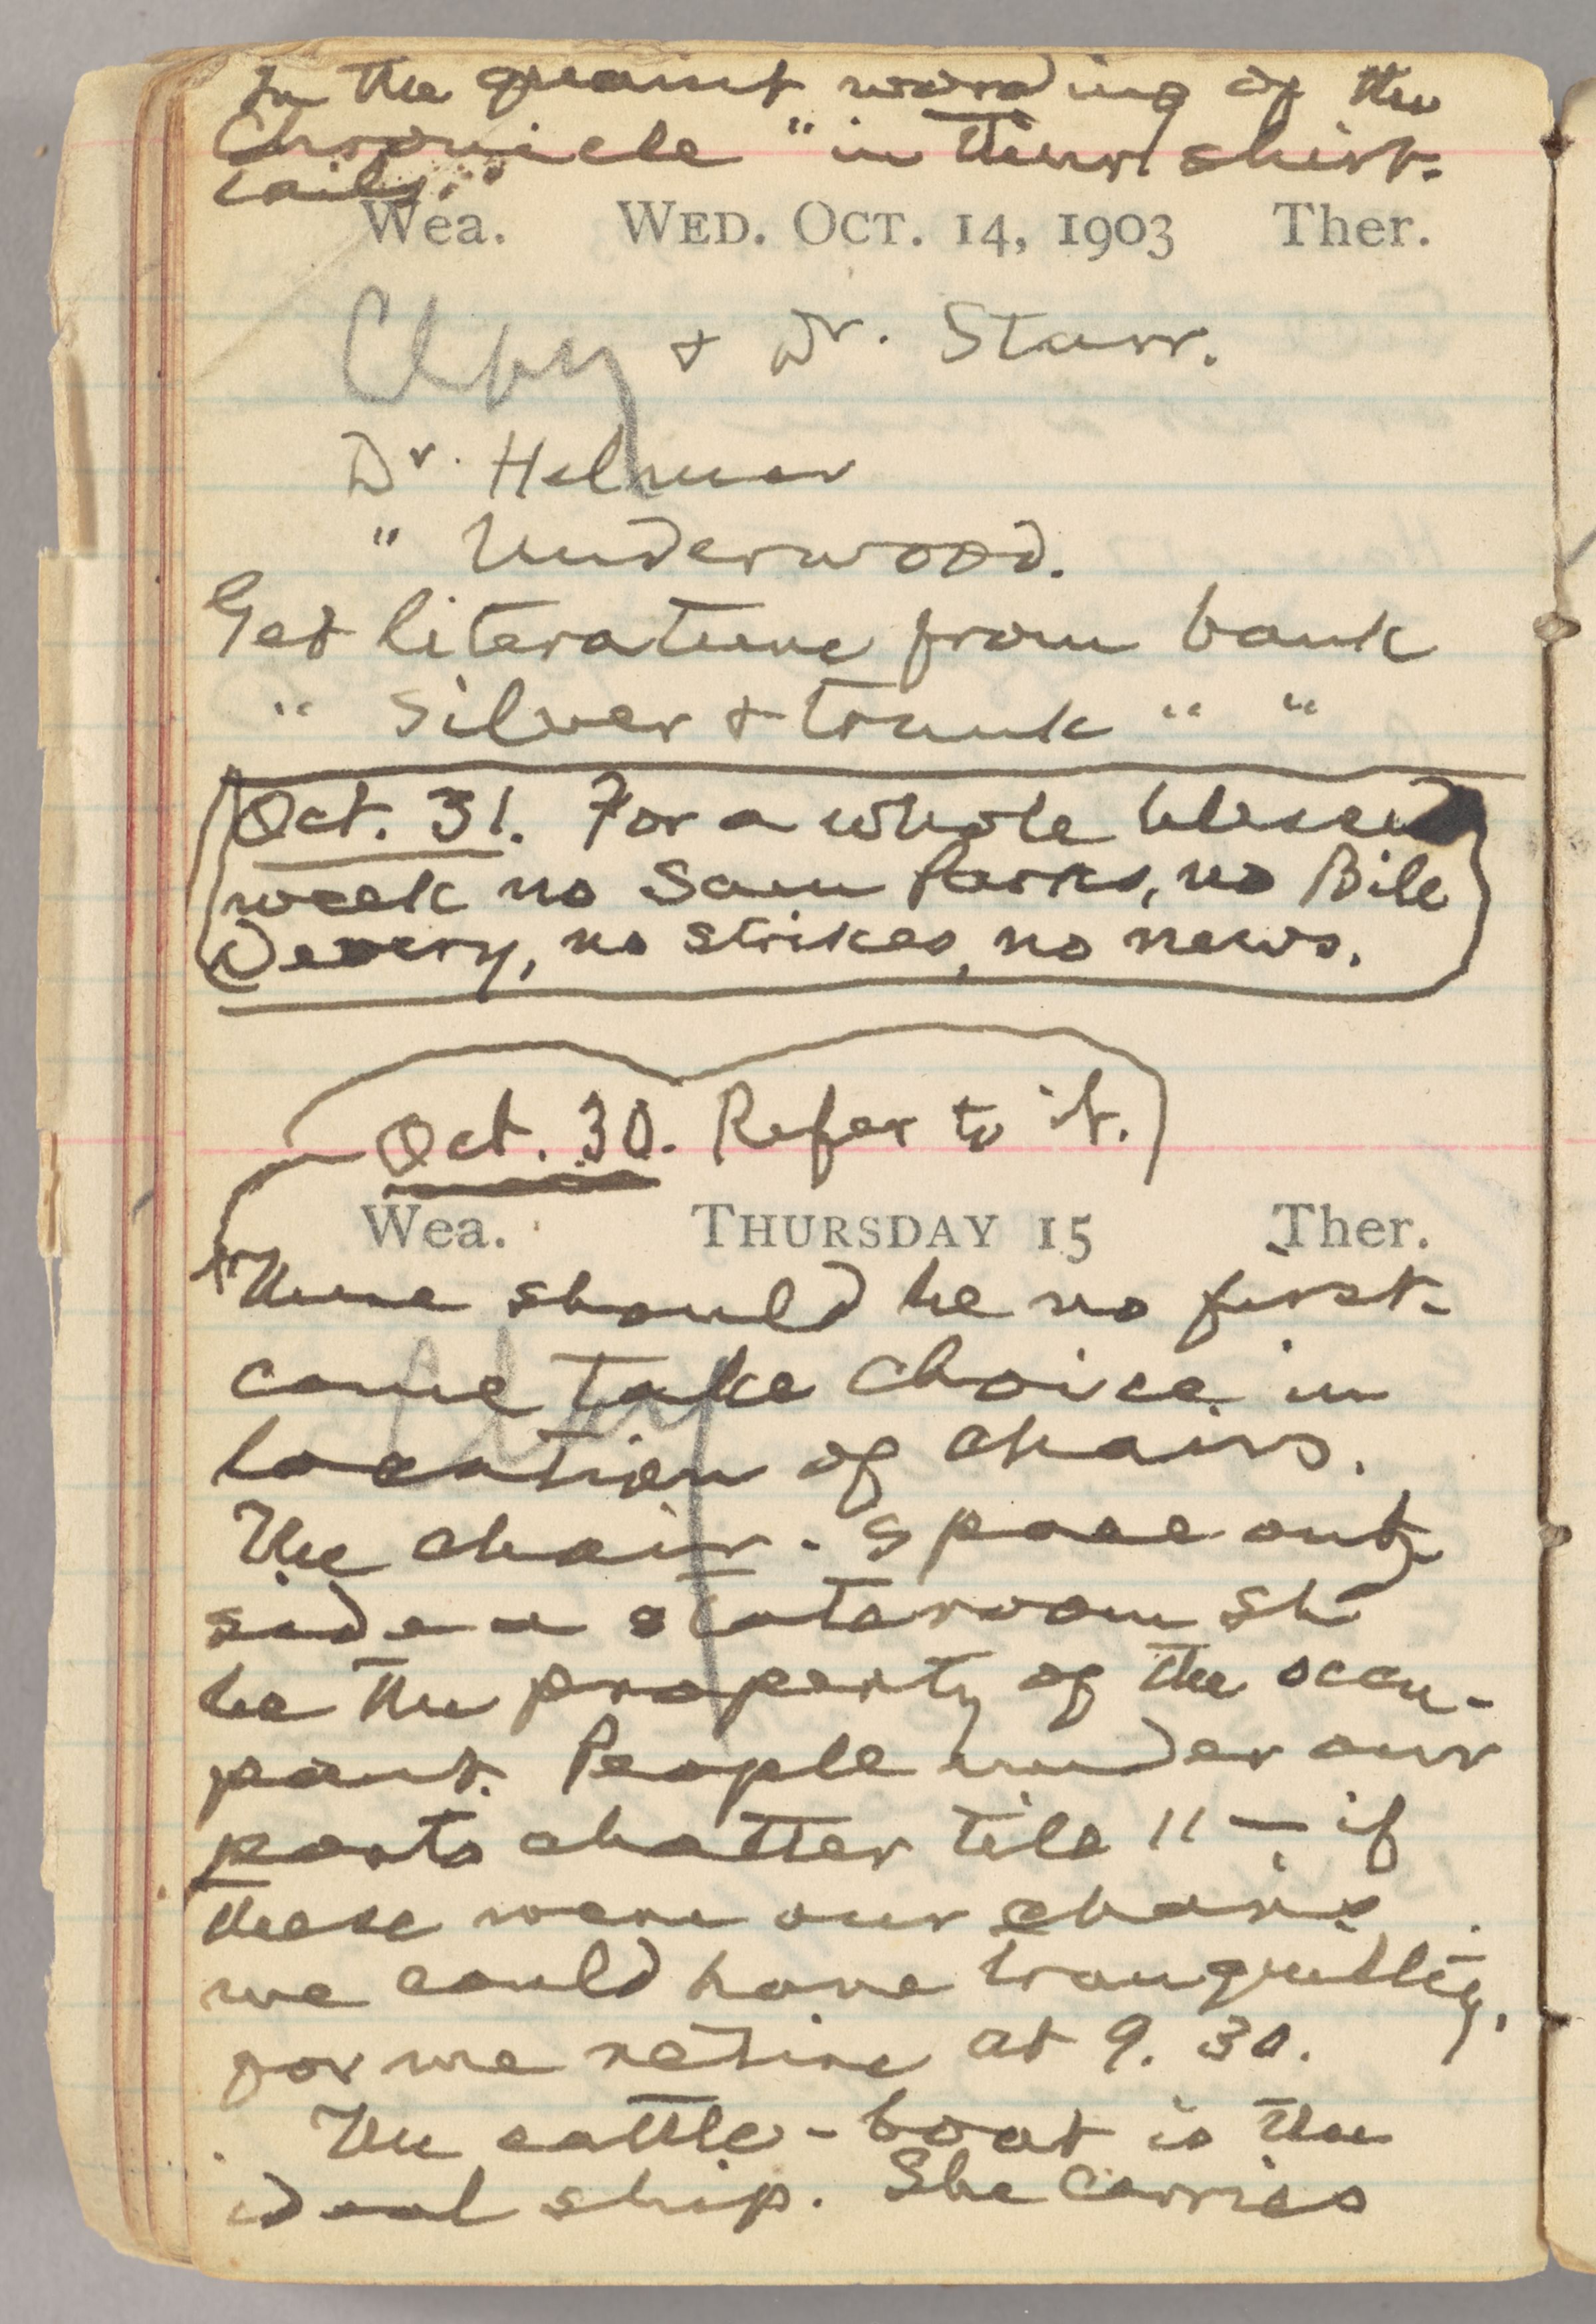 In the quaint wording of the
Chronicle "in their shirt-
tails."
Wea. WED. OCT. 14, 1903 Ther.
& Dr. Starr.
Dr. Helmer
" Underwood.
Get literature from bank
" Silver & trunk " "
Oct. 31. For a whole blessed
week no Sam Parks, no Bill
Devery, no strikes, no news.
Oct. 30. Refer to it.
Wea. THURSDAY 15 Ther.
There should be no first-
come take choice in
location of chairs.
The chair-space out-
side a stateroom shd
be the property of the occu-
pant. People under our
ports chatter till 11 — if
these were our chairs
we could have tranquillity,
for we retire at 9.30.
The cattle-boat is the
ideal ship. She carries